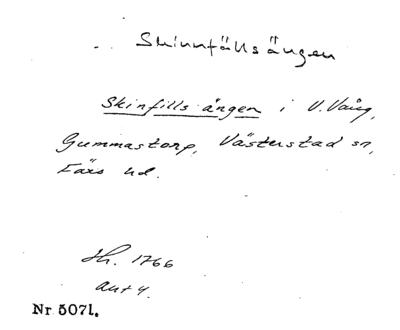 Skinnfällsängen
Skinfills ängen i V. Vång,
Gummastorp, Västerstad sn,
Färs hd.
Sk. 1766
akt 4.
Nr 5071.